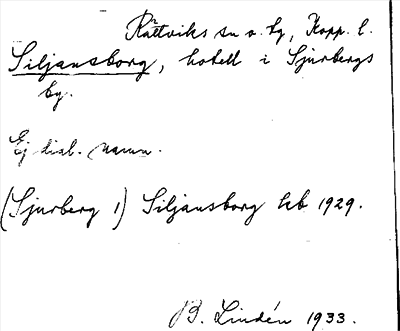 Rättviks sn o. tg, Kopp. l.
Siljansborg, hotell i Sjurbergs
by.
Ej dial. namn.
(Sjurberg 1) Siljansborg kb 1929.
B. Lindén 1933.